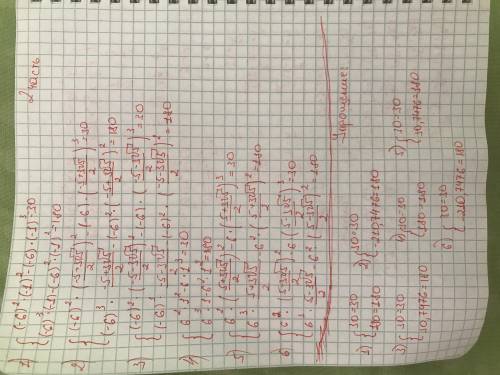 2 часть
1) { (-6)² · (-1)² - (-6) · (-1)³ = 30
(-6)³ · (-1) - (-6)² · (-1)² = 180
2) { (-6)² · (-5+3√5 / 2)² - (-6) · (-5+3√5 / 2)³ = 30
(-6)³ · -5+3√5 / 2 - (-6)² · (-5+3√5 / 2)² = 180
3) { (-6)² · (-5-3√5 / 2)² - (-6) · (-5-3√5 / 2)³ = 30
(-6)³ · -5-3√5 / 2 - (-6)² · (-5-3√5 / 2)² = 180
4) { 6² · 1² - 6 · 1³ = 30
6³ · 1 - 6² · 1² = 180
5) { 6² · (5+3√5 / 2)² - 6 · (5+3√5 / 2)³ = 30
6³ · 5+3√5 / 2 - 6² · (5+3√5 / 2)² = 180
6) { 6² · (5-3√5 / 2)² - 6 · (5-3√5 / 2)³ = 30
6³ · 5-3√5 / 2 - 6² · (5-3√5 / 2)² = 180
Упрощение:
1) { 30=30
180=180
2) { 30=30
-210,7476=180
3) { 30=30
30,7476=180
4) { 30=30
180=180
5) { 30=30
30,7476=180
6 { 30=30
-210,7476=180